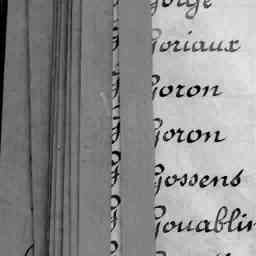 Gorge
Goriaux
Goron
Goron
Gossens
Gouablin